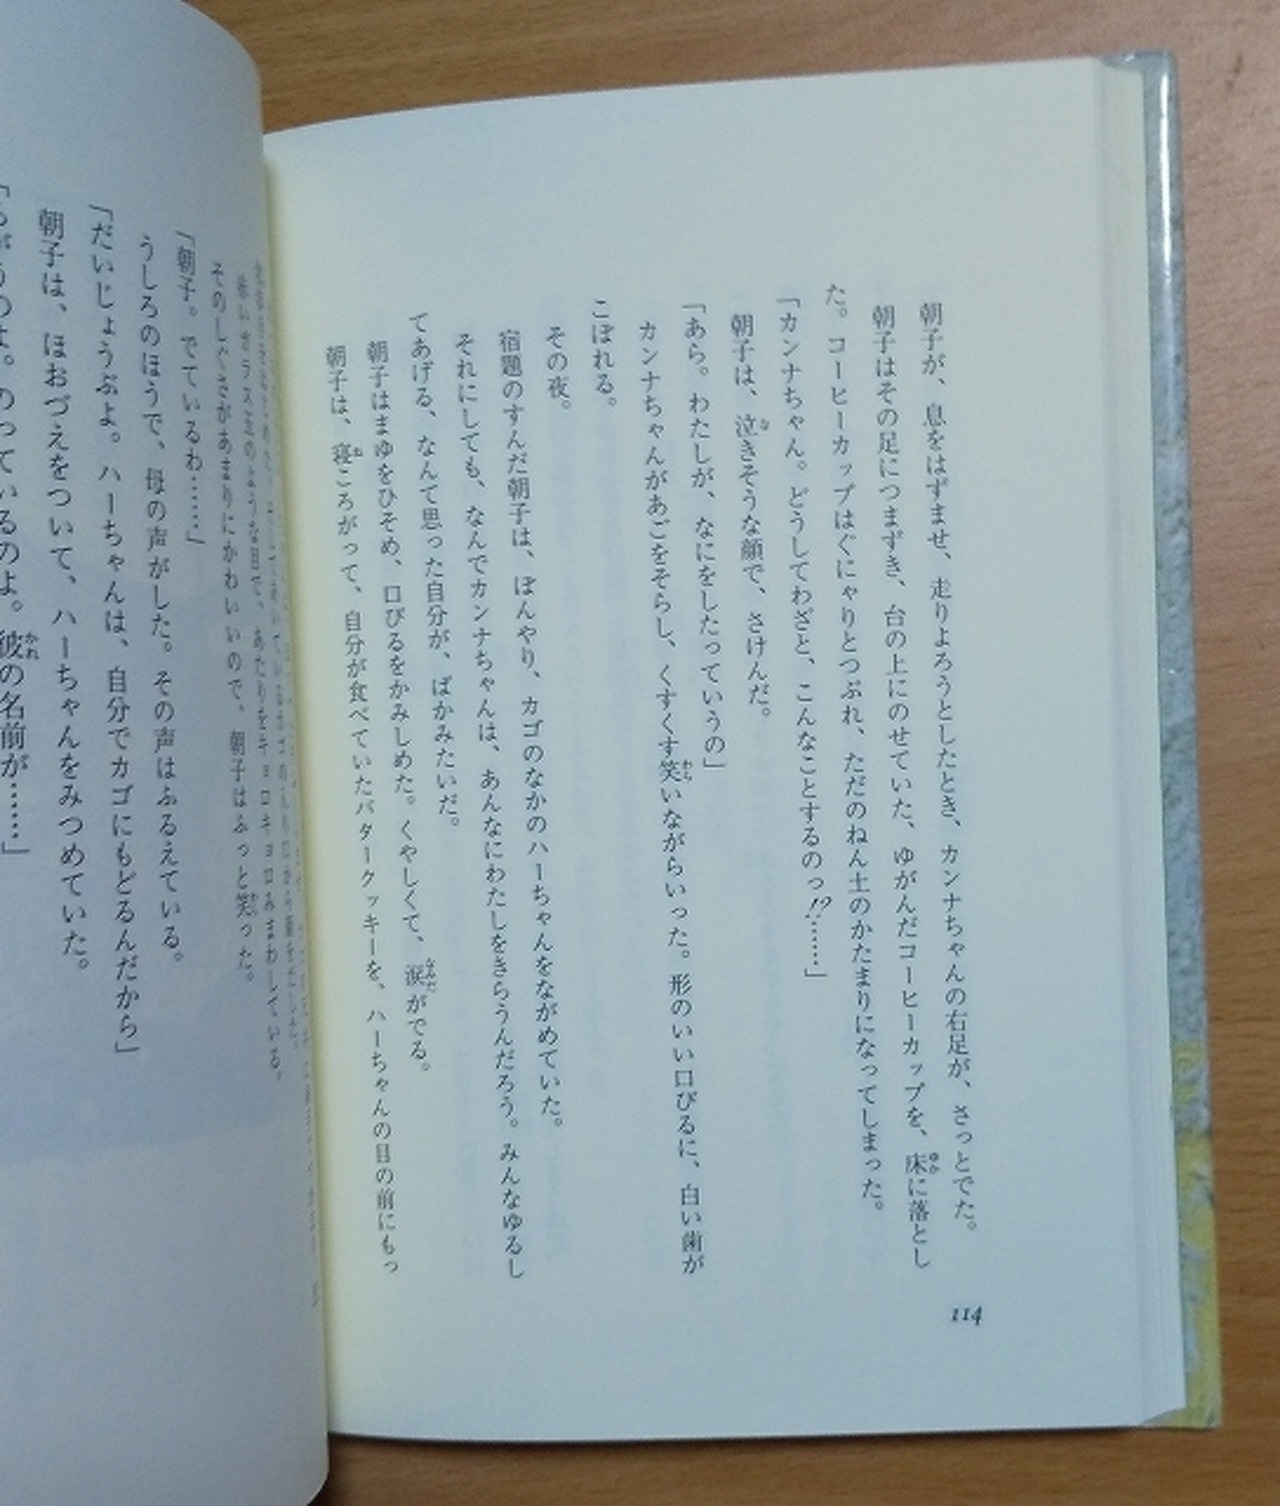 朝子が、息をはずませ、走りよろうとしたとき、カンナちゃんの右足が、さっとでた。
朝子はその足につまずき、台の上にのせていた、ゆがんだコーヒーカップを、床に落とし
た。コーヒーカップはぐにゃりとつぶれ、ただのねん土のかたまりになってしまった。
「カンナちゃん。どうしてわざと、こんなことするのっ!?……」
朝子は、泣きそうな顔で、さけんだ。
「あら。わたしが、なにをしたっていうの」
カンナちゃんがあごをそらし、くすくす笑いながらいった。形のいい口びるに、白い歯が
こぼれる。
その夜。
宿題のすんだ朝子は、ぼんやり、カゴのなかのハーちゃんをながめていた。
それにしても、なんでカンナちゃんは、あんなにわたしをきらうんだろう。みんなゆるし
てあげる、なんて思った自分が、ばかみたいだ。
朝子はまゆをひそめ、口びるをかみしめた。くやしくて、涙がでる。
朝子は、寝ころがって、自分が食べていたバタークッキーを、ハーちゃんの目の前にもっ
114
そのしぐさがあまりにかわいいので、朝子はふっと笑った。
「朝子。でているわ……」
うしろのほうで、母の声がした。その声はふるえている。
「だいじょうぶよ。ハーちゃんは、自分でカゴにもどるんだから」
朝子は、ほおづえをついて、ハーちゃんをみつめていた。
「ちがうのよ。のっているのよ。彼の名前が……」